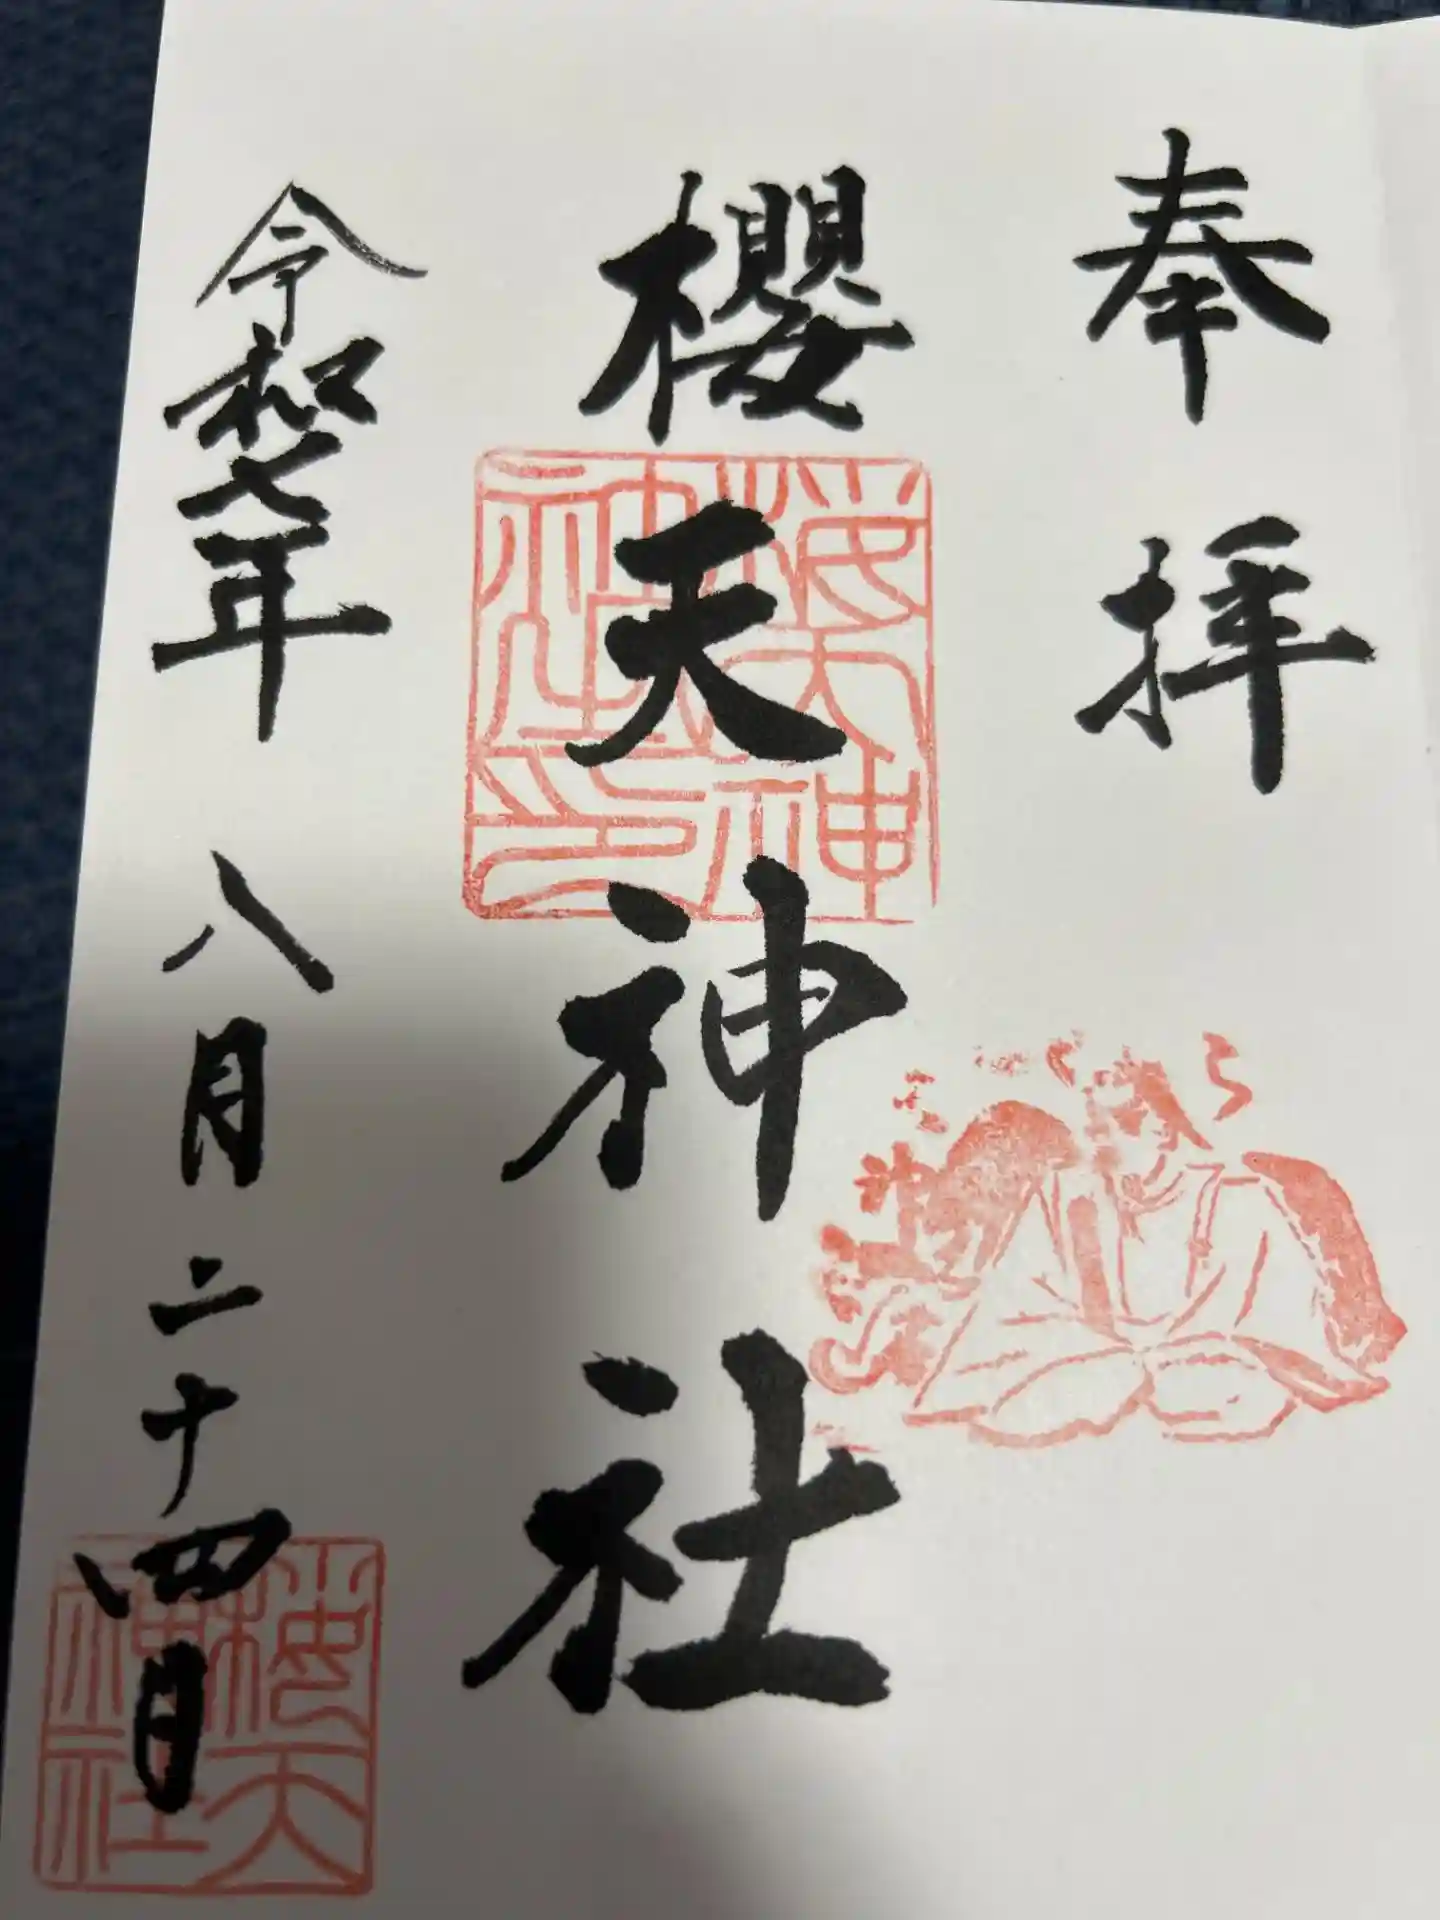 奉拝
櫻天神社
桜天神社印
令和七年 八月二十四日
桜天神社